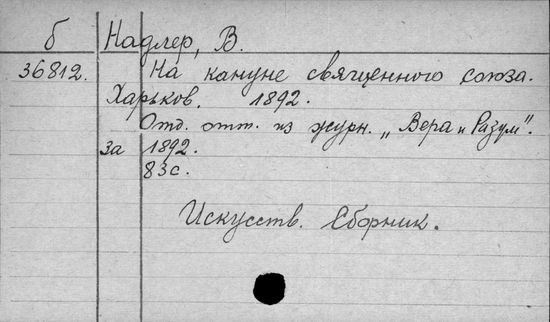 б Надлер, В.
36812. На кануне священного союза.
Харьков. 1892.
Отд. отт. из журн. „Вера и Разум".
за 1892.
83с.
Искусств. Сборник.